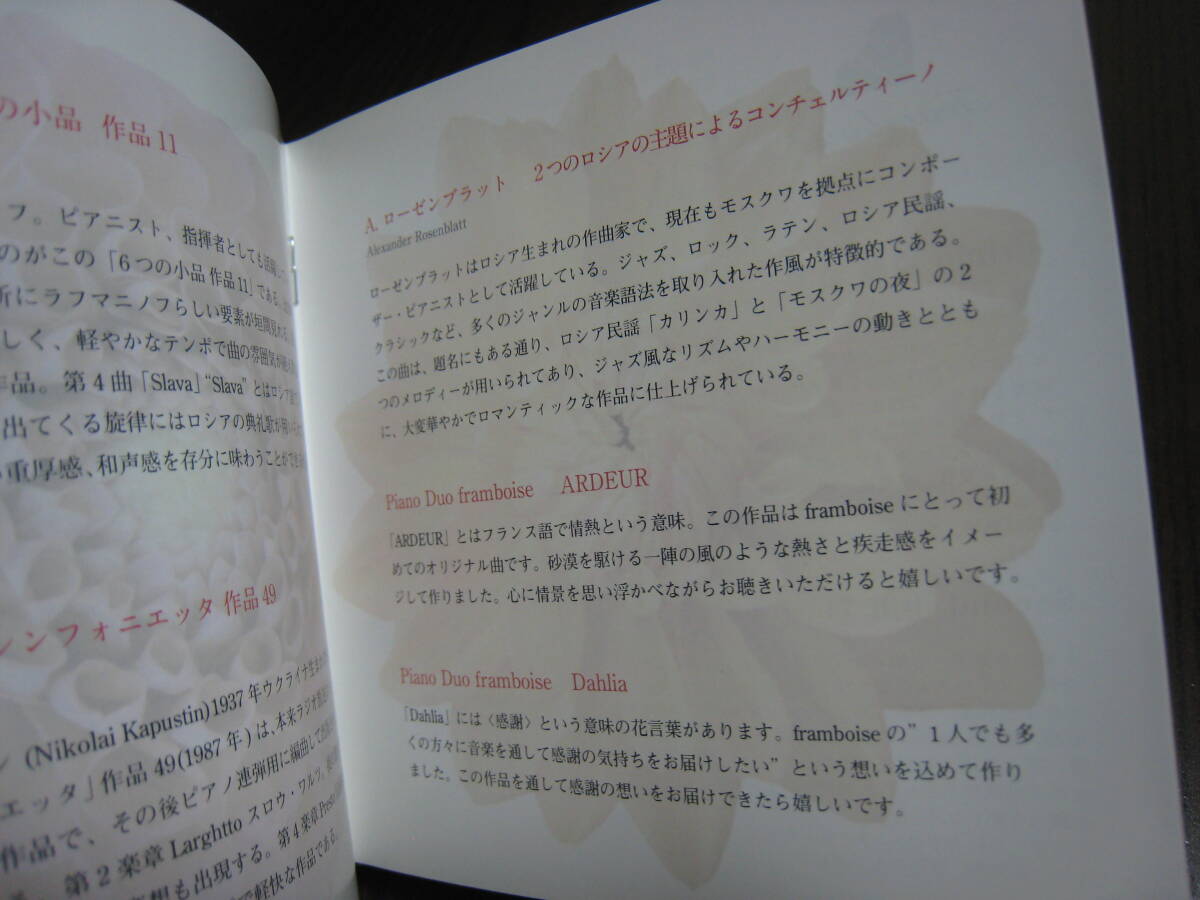 の小品 作品11
フ。ピアニスト、指揮者としても活躍し
のがこの「6つの小品 作品11」である。
所にラフマニノフらしい要素が垣間見れる。
しく、軽やかなテンポで曲の雰囲気が
作品。第4曲「Slava」“Slava”とはロシア
出てくる旋律にはロシアの典礼歌が
重厚感、和声感を存分に味わうことができ
シンフォニエッタ 作品49
ン (Nikolai Kapustin)1937年ウクライナ生まれ
エッタ」作品49(1987年)は、本来ラジオ放送
作品で、その後ピアノ連弾用に編曲して
第2楽章Larghttoスロウ・ワルツ。
想も出現する。第4楽章Presto
で軽快な作品である。
A. ローゼンブラット 2つのロシアの主題によるコンチェルティーノ
Alexander Rosenblatt
ローゼンブラットはロシア生まれの作曲家で、現在もモスクワを拠点にコンポー
ザー・ピアニストとして活躍している。ジャズ、ロック、ラテン、ロシア民謡、
クラシックなど、多くのジャンルの音楽語法を取り入れた作風が特徴的である。
この曲は、題名にもある通り、ロシア民謡「カリンカ」と「モスクワの夜」の2
つのメロディーが用いられてあり、ジャズ風なリズムやハーモニーの動きととも
に、大変華やかでロマンティックな作品に仕上げられている。
Piano Duo framboise ARDEUR
「ARDEUR」とはフランス語で情熱という意味。この作品は framboise にとって初
めてのオリジナル曲です。砂漠を駆ける一陣の風のような熱さと疾走感をイメー
ジして作りました。心に情景を思い浮かべながらお聴きいただけると嬉しいです。
Piano Duo framboise Dahlia
「Dahlia」には〈感謝〉という意味の花言葉があります。framboise の”1人でも多
くの方々に音楽を通して感謝の気持ちをお届けしたい”という想いを込めて作り
ました。この作品を通して感謝の想いをお届けできたら嬉しいです。